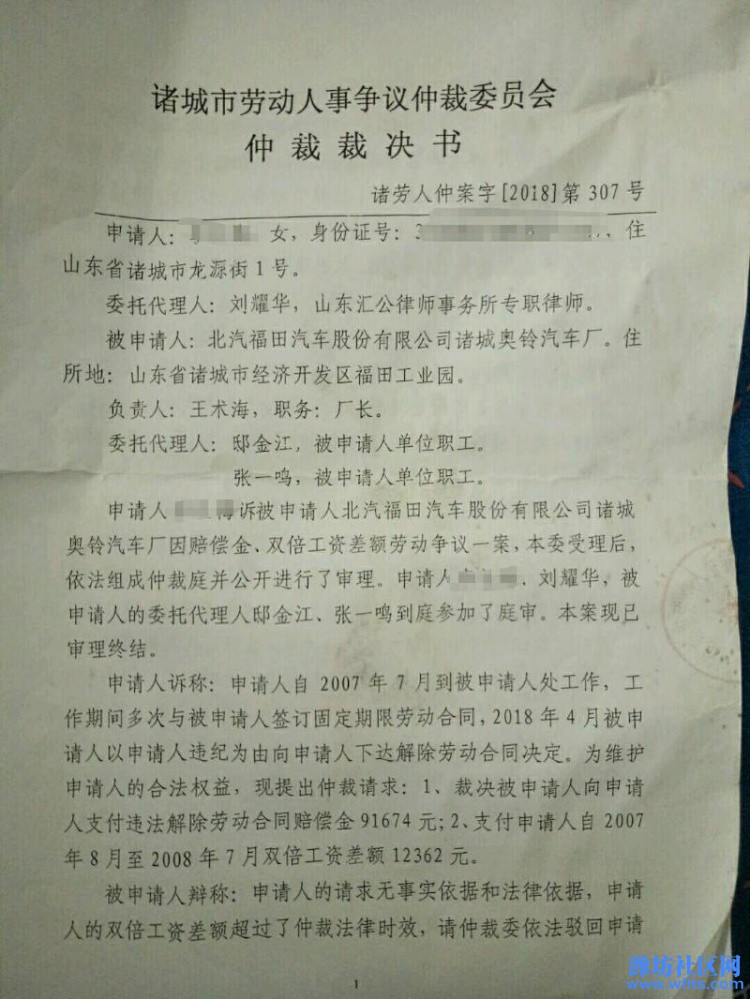 诸城市劳动人事争议仲裁委员会
仲裁裁决书
诸劳人仲案字[2018]第 307 号
申请人: 女,身份证号:3 住
山东省诸城市龙源街1号。
委托代理人:刘耀华,山东汇公律师事务所专职律师。
被申请人:北汽福田汽车股份有限公司诸城奥铃汽车厂。住
所地:山东省诸城市经济开发区福田工业园。
负责人:王术海,职务:厂长。
委托代理人:邸金江,被申请人单位职工。
张一鸣,被申请人单位职工。
申请人 诉被申请人北汽福田汽车股份有限公司诸城
奥铃汽车厂因赔偿金、双倍工资差额劳动争议一案,本委受理后,
依法组成仲裁庭并公开进行了审理。申请人 . 刘耀华,被
申请人的委托代理人邸金江、张一鸣到庭参加了庭审。本案现已
审理终结。
申请人诉称:申请人自 2007 年 7 月到被申请人处工作,工
作期间多次与被申请人签订固定期限劳动合同,2018 年 4 月被申
请人以申请人违纪为由向申请人下达解除劳动合同决定。为维护
申请人的合法权益,现提出仲裁请求:1、裁决被申请人向申请
人支付违法解除劳动合同赔偿金 91674 元;2、支付申请人自 2007
年 8 月至 2008 年 7 月双倍工资差额 12362 元。
被申请人辩称:申请人的请求无事实依据和法律依据,申请
人的双倍工资差额超过了仲裁法律时效,请仲裁委依法驳回申请
1
潍坊社区网
www.wfits.com